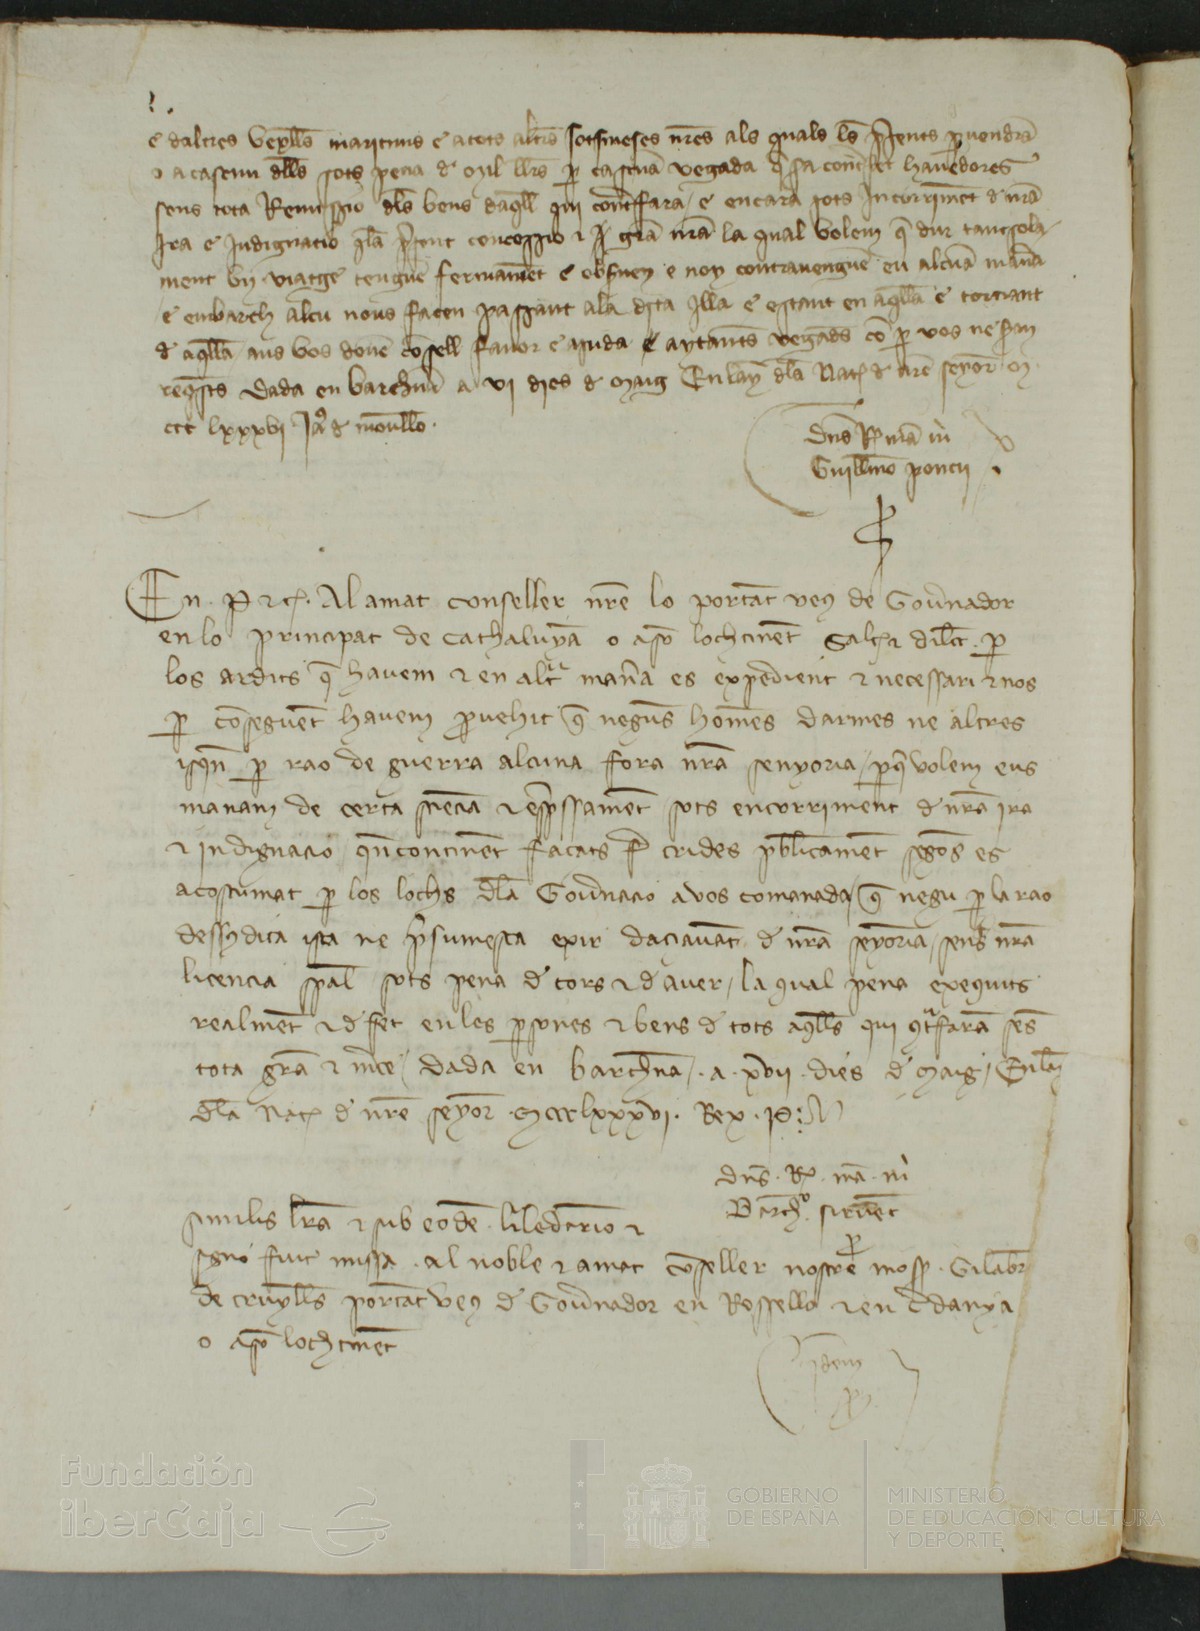 e daltres vexells maritims e a tots altres sotsmeses nres als quals les pñts pvendrã
o a cascun dells sots pena de mil llrs p cascuna vegada havedores
sens tota Remissio dels bens daqll qui contrffara / e encara sots incorriment de nrã
ira e indignacio qla pñt concessio e grã nrã la qual volem q dur tansola/
ment un viatge tengue fermamẽt e observen e noy contravenguen en alcunã manã
e embarch alcu nous facen passant ala dita illa e estant en aqllã e tornant
de aqllã ans vos donẽ cõsell favor e aiuda e aytants vegads cõ p vos ne sien
reqsts dada en barchnã a vi dies de Maig En lãy dla Nat de nrẽ senyor M
ccc lxxxvi Ja de monllo.
Dns Rex mã m
Guillmo poncii
p
En P etc. Al amat conseller nrẽ lo portãt veus de Govnador
en lo principat de Cathaluyã o aso lochtinẽt Salut e dilcc. p
los ardits q havem e en altra manã es expedient e necessari e nos
p cõseguẽt havem pvehit q neguns homẽs darmes ne altres
isqñ p rao de guerra alcuna fora nrã senyoria / pq volem eus
manam de certa sciẽcia e espssamẽt sots encorriment de nrã ira
e indignacio qncontinẽt façats fr crides pblicamẽt segõs es
acostumat p los lochs dlã Govnacio a vos comanada / q negu p la rao
dessusdita ista ne psumesca exir daciavãt de nrã seyoria / sens nrã
licencia spal sots pena de cors e de aver / la qual pena exequits
realmẽt e de fet en les psones e bens de tots aqlls qui 9tfaran sẽs
tota grã e mce / Dada en barchnã . a . xvii . dies de Maig / En lãy
dla Nat de nrẽ seyor . Mccclxxxvi . Rex . P.
Dns . Rx . mã . m
Barth. sirvẽt
p
Similis lrã e sub eodẽ kaledario e
signo fuit missa . al noble e amat cõseller nostre mosss . Gilabr
de cruylls portãt veus de Govnador en Rossello e en Cdanya
o aso lochtinẽt
Idem
p
Fundación
iberCaja
GOBIERNO
DE ESPAÑA
MINISTERIO
DE EDUCACIÓN, CULTURA
Y DEPORTE